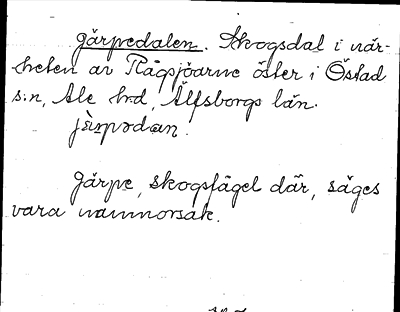 Järpedalen. Skogsdal i när-
heten av Rågsjöarne öster i Östad
s:n, Ale hd, Älfsborgs län.
jä̀rpədan.
Järpe, skogsfågel där, säges
vara namnorsak.